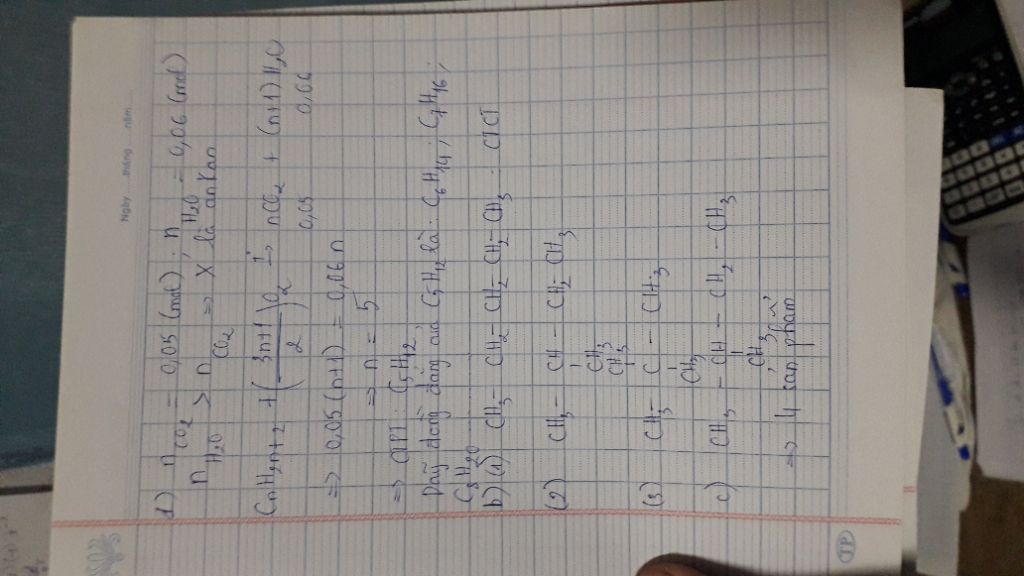 Ngày ..... tháng ..... năm .....
1) nCO2 = 0,05 (mol) ; nH2O = 0,06 (mol)
nH2O > nCO2 => X là ankan
CnH2n+2 + (3n+1/2)O2 -> nCO2 + (n+1)H2O
0,05 0,06
=> 0,05(n+1) = 0,06n
=> n = 5
=> CTPT: C5H12
Dãy đồng đẳng của C5H12 là: C6H14; C7H16;
C8H20
b) (1) CH3 - CH2 - CH2 - CH2 - CH3 CTCT
(2) CH3 - CH - CH2 - CH3
CH3
CH3
(3) CH3 - C - CH3
CH3
c) CH3 - CH - CH2 - CH3
CH3
=> 4 sản phẩm
TP